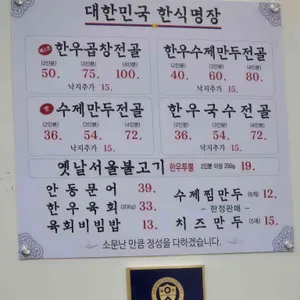 대한민국 한식명장
베스트 한우곱창전골
(2인분) (3인분) (4인분)
50. 75. 100.
낙지추가 15.
한우수제만두전골
(2인분) (3인분) (4인분)
40. 60. 80.
낙지추가 15.
수제만두전골
(2인분) (3인분) (4인분)
36. 54. 72.
낙지추가 15.
한우국수전골
(2인분) (3인분) (4인분)
36. 54. 72.
옛날서울불고기 한우투뿔 2인분 이상 250g 19.
안동문어 39.
한우육회 (200g) 33.
육회비빔밥 13.
수제찜만두 (8개) 12.
-한정판매-
치즈만두 (5개) 15.
소문난 만큼 정성을 다하겠습니다.